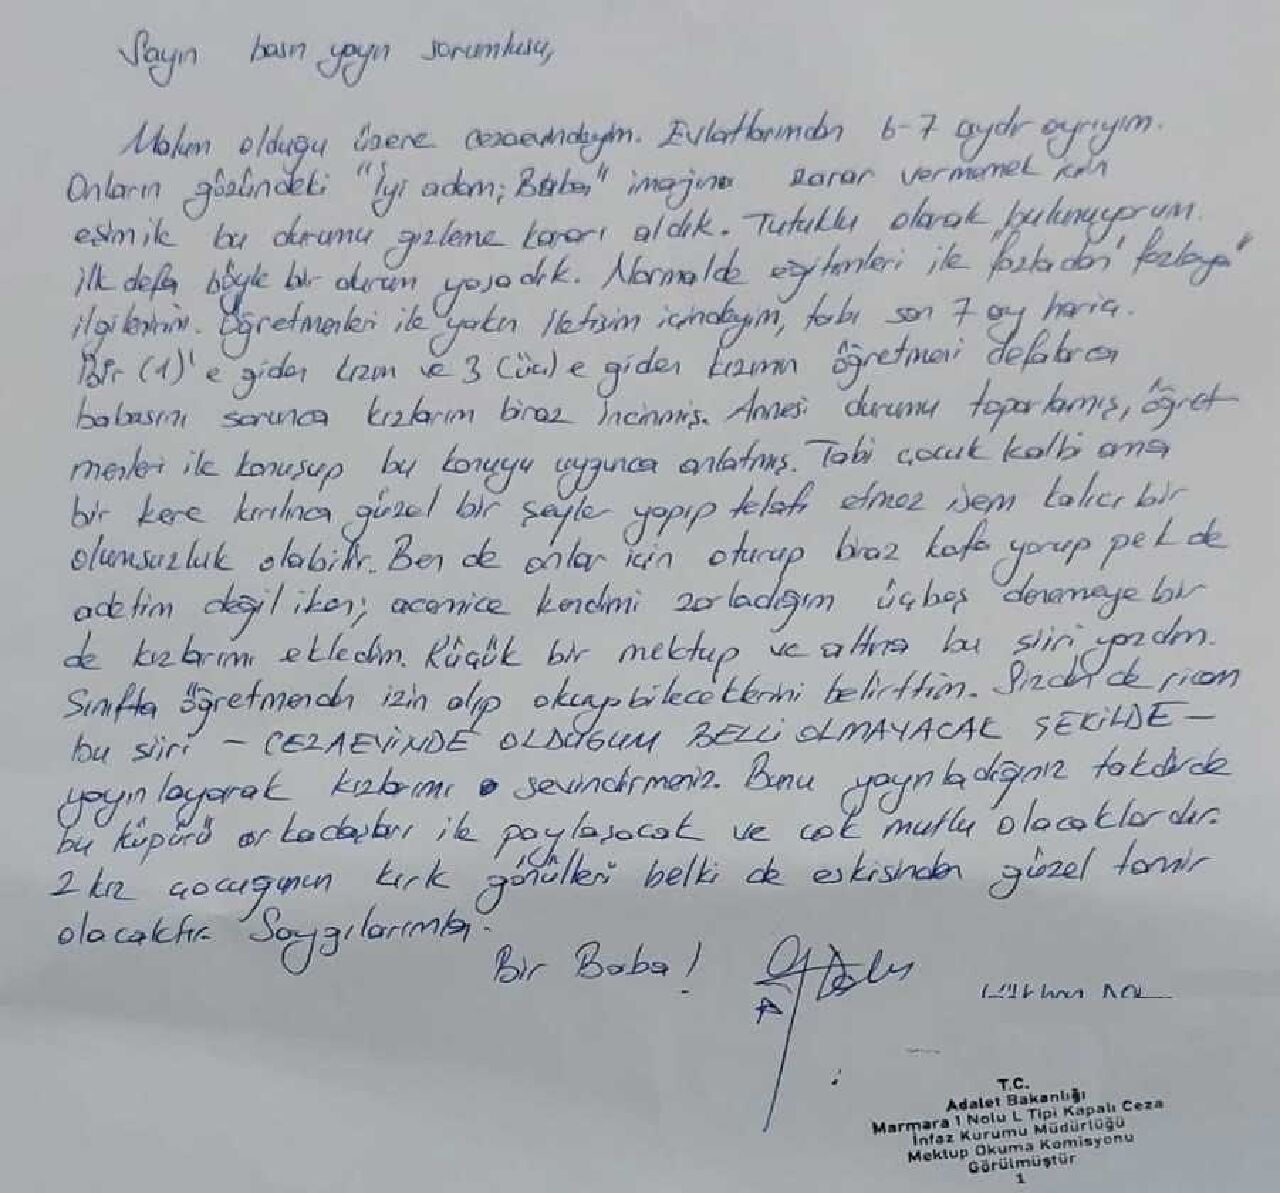 Sayın basın yayın sorumlusu,
Malum olduğu üzere cezaevindeyim. Evlatlarımdan 6-7 aydır ayrıyım.
Onların gözündeki "İyi adam; Baba" imajına zarar vermemek için
eşimle bu durumu gizleme kararı aldık. Tutuklu olarak bulunuyorum.
İlk defa böyle bir durum yaşadık. Normalde eğitimleri ile "fazladan fazlaya"
ilgilenirim. Öğretmenleri ile yakın iletişim içindeyim, tabi son 7 ay hariç.
Bir (1)'e giden kızım ve 3 (üç)e giden kızımın öğretmeni defalarca
babasını sorunca kızlarım biraz incinmiş. Annesi durumu toparlamış, öğret
menleri ile konuşup bu konuyu uygunca anlatmış. Tabi çocuk kalbi ama
bir kere kırılınca güzel bir şeyler yapıp telafi etmez isem kalıcı bir
olumsuzluk olabilir. Ben de onlar için oturup biraz kafa yorup pek de
adetim değil iken; acemice kendimi zorladığım üçbeş denemeye bir
de kızlarımı ekledim. Küçük bir mektup ve altına bu şiiri yazdım.
Sınıfta öğretmenden izin alıp okuyabileceklerini belirttim. Sizden de ricam
bu şiiri - CEZAEVİNDE OLDUĞUM BELLİ OLMAYACAK ŞEKİLDE -
yayınlayarak kızlarımı sevindirmeniz. Bunu yayınladığınız takdirde
bu küpürü arkadaşları ile paylaşacak ve çok mutlu olacaklardır.
2 kız çocuğunun kırık gönülleri belki de eskisinden güzel tamir
olacaktır. Saygılarımla.
Bir Baba!
T.C.
Adalet Bakanlığı
Marmara 1 Nolu L Tipi Kapalı Ceza
İnfaz Kurumu Müdürlüğü
Mektup Okuma Komisyonu
Görülmüştür
1